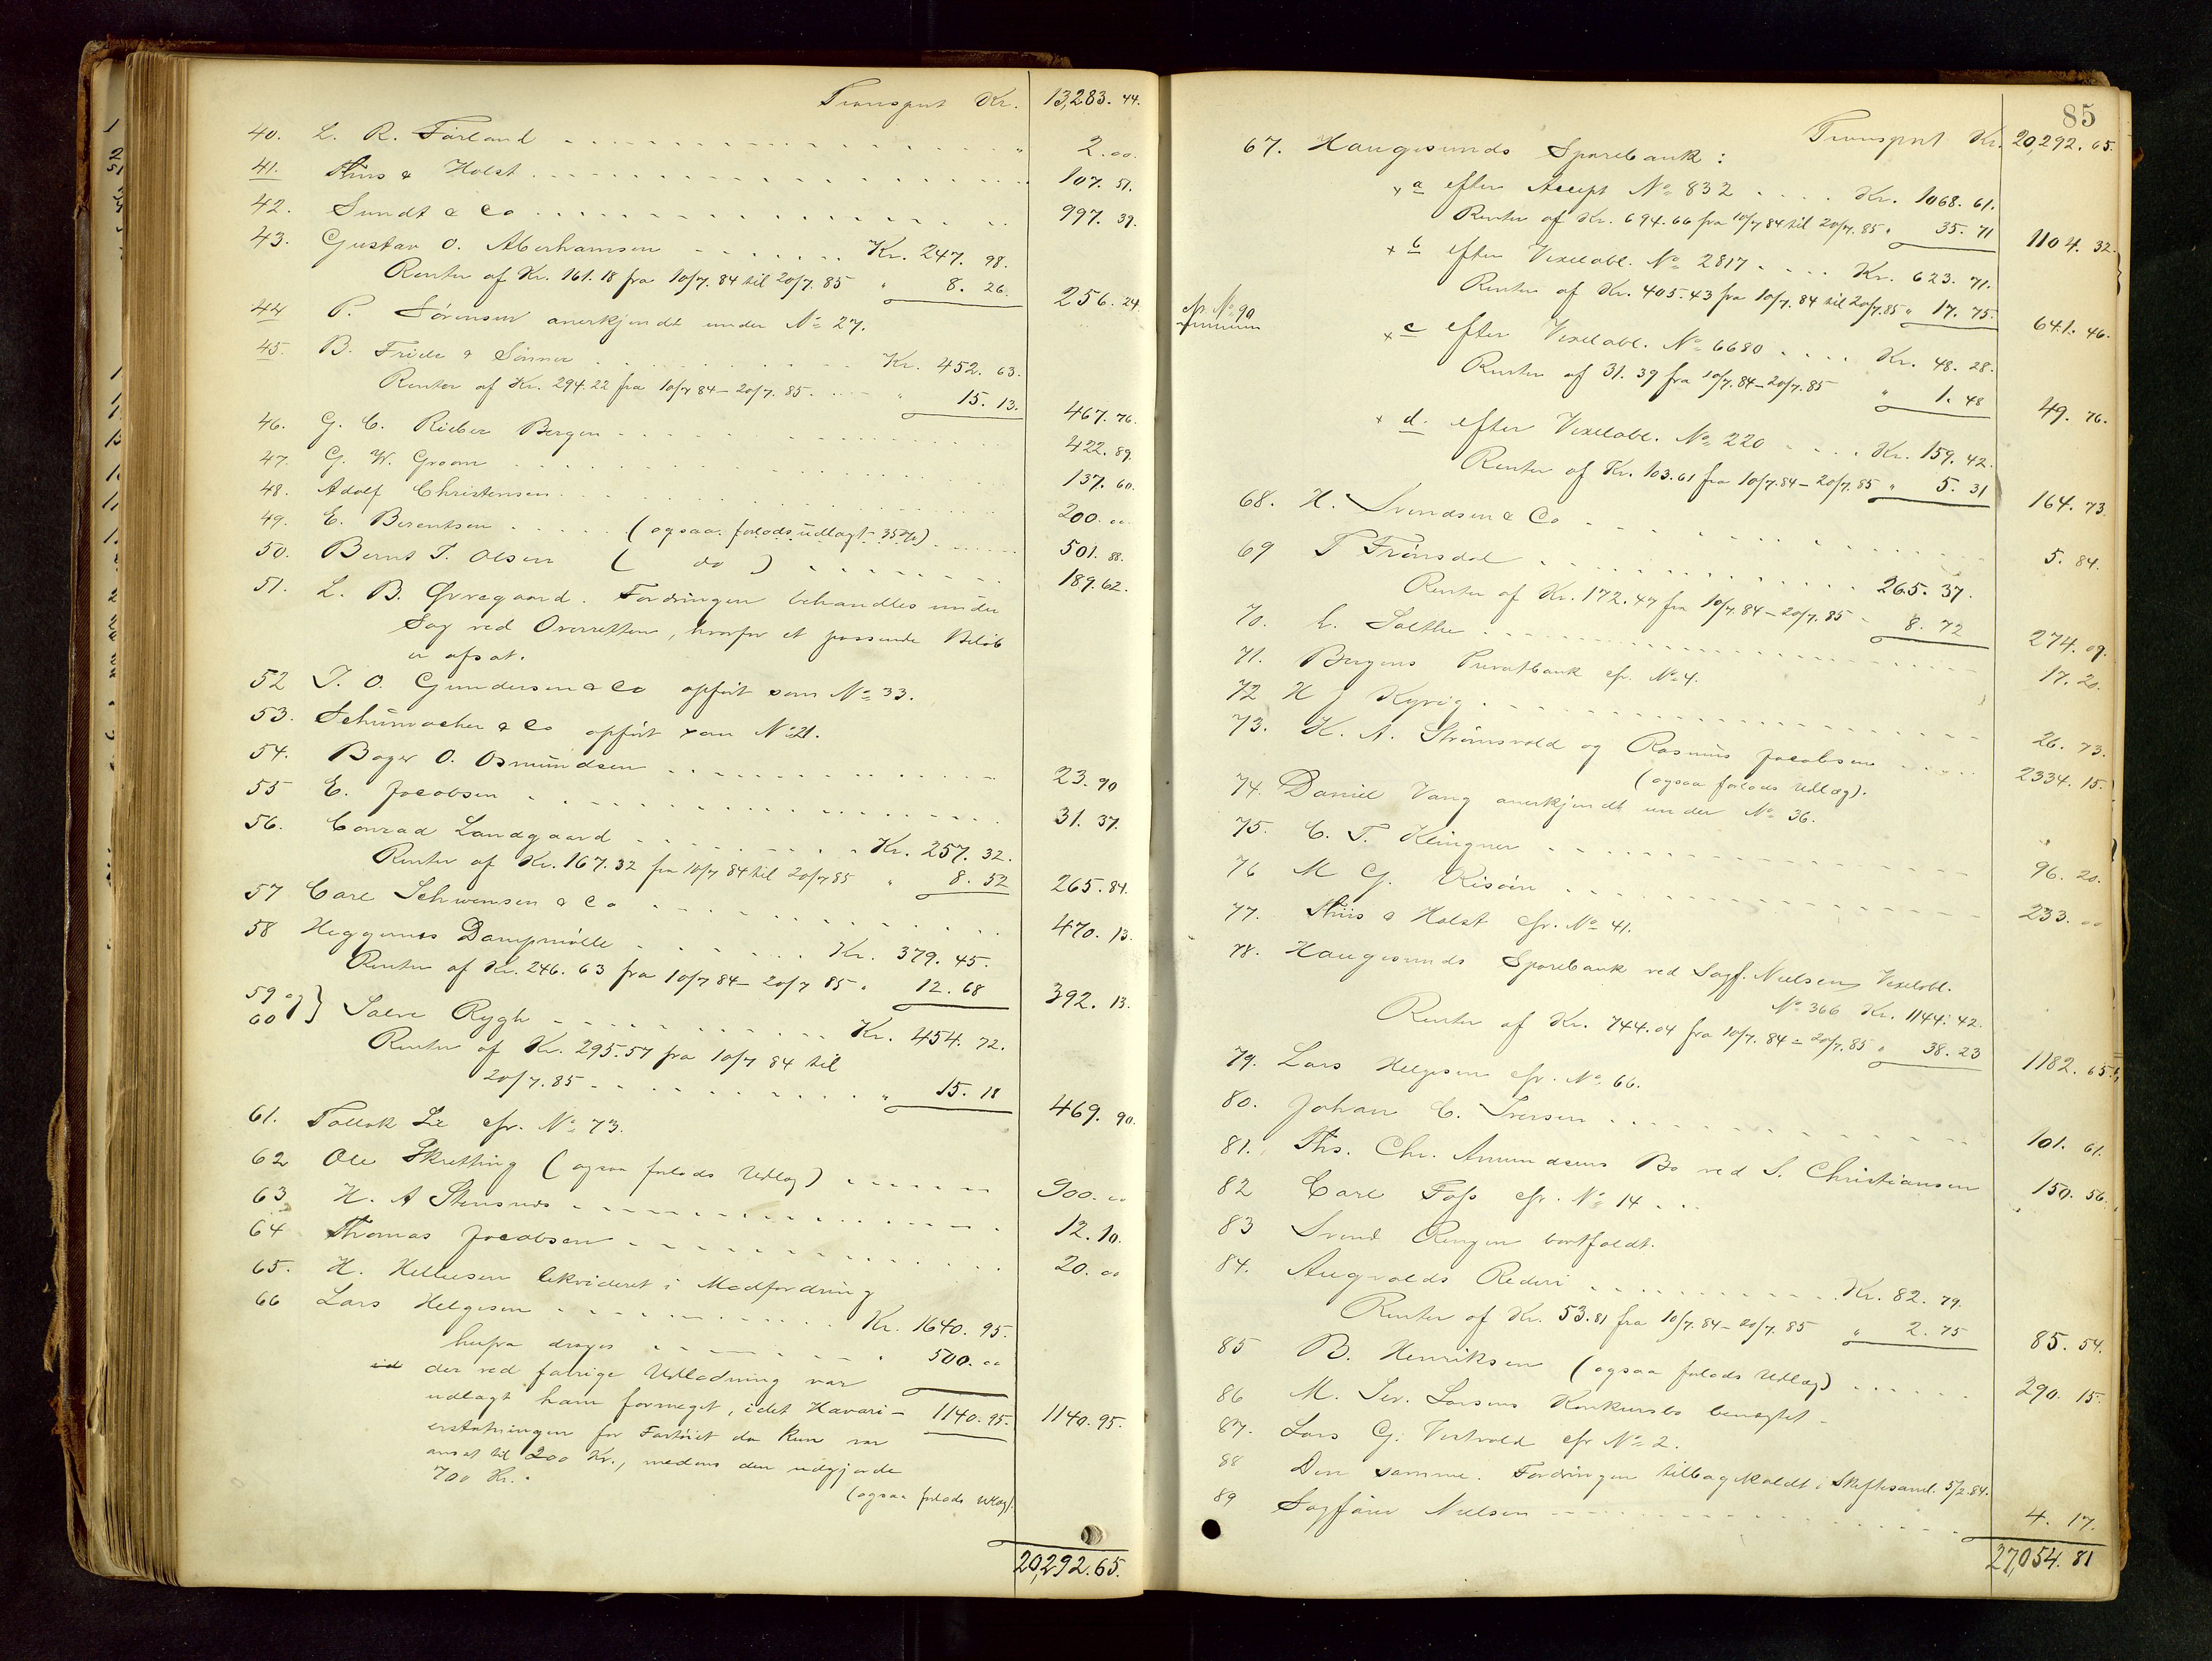 Transport Kr. 13,283. 44.
40. L. R. Førland " 2. 00.
41. Thiis & Holst 107. 51.
42. Sundt & Co 997. 39.
43. Gustav O. Aberhamsen Kr. 247. 98.
Renter af Kr. 161.18 fra 10/7. 84 til 20/7. 85 " 8. 26. 256. 24
44 P. Sørensen anerkjendt under No 27.
45. B. Friele & Sønner Kr. 452. 63.
Renter af Kr. 294.22 fra 10/7 84 - 20/7. 85. " 15. 13. 467. 76.
46. G. C. Rieber Bergen 422. 89.
47. G. W. Groom 137. 60.
48. Adolf Christensen 200. 00
49. E. Berentsen (ogsaa forlods udlagt 35%) 501. 88.
50. Bernt T. Olsen ( do ) 189. 62.
51. L. B. Øvregaard. Fordringen behandles under
Sag ved Overretten, hvorfor et passende Beløb
er afsat.
52 T. O. Gundersen & Co opført som No 33.
53. Schumacher & Co opført som No 21.
54. Boger O. Osmundsen 23. 90
55 E. Jacobsen 31. 37.
56. Conrad Landgaard Kr. 257. 32.
Renter af Kr. 167.32 fra 10/7 84 til 20/7 85 " 8. 52 265. 84.
57 Carl Schwensen & Co 470. 13.
58 Heggernes Dampmølle Kr. 379. 45.
Renter af Kr. 246. 63 fra 10/7 84 - 20/7 85 " 12. 68 392. 13.
59 og 60 } Salve Rygh Kr. 454. 72.
Renter af Kr. 295.57 fra 10/7 84 til
20/7. 85 " 15. 18 469. 90.
61. Tallak Lie cfr. No 73.
62 Ole Skretting (ogsaa forlods Udlæg) 900. 00
63 H. A Stensnes 12. 10.
64 Thomas Jacobsen 20. 00
65. H. Helliesen likvideret i Modfordring
66 Lars Helgesen Kr. 1640. 95.
herfra drages 500. 00
der ved forrige Udlodning var
udlagt ham formeget, idet Havari- 1140. 95. 1140. 95.
erstatningen for Fartøiet da kun var
ansat til 200 Kr., medens den udgjorde
700 Kr.
(ogsaa forlods Udlæg).
20,292. 65.
85
Transport Kr. 20,292. 65.
67. Haugesunds Sparebank:
x a efter Accept No 832 Kr. 1068. 61.
Renter af Kr. 694.66 fra 10/7 84 til 20/7. 85 " 35. 71 1104. 32.
x b efter Vexelobl. No 2817 Kr. 623. 71.
Renter af Kr. 405.43 fra 10/7. 84 til 20/7. 85 " 17. 75. 641. 46.
cfr. No 90
x c efter Vexelobl. No 6680 Kr. 48. 28.
Renter af 31. 39 fra 10/7. 84 - 20/7. 85 " 1. 48 49. 76.
x d. efter Vexelobl. No 220 Kr. 159. 42.
Renter af Kr. 103.61 fra 10/7. 84 - 20/7. 85 " 5. 31 164. 73.
68. H. Svendsen & Co 5. 84.
69 T Frønsdal 265. 37.
Renter af Kr. 172. 47 fra 10/7. 84 - 20/7. 85 - 8. 72 274. 09.
70. L. Salthe 17. 20.
71. Bergens Privatbank cfr. No 4.
72 H J Kyvig 26. 73.
73. K. A. Strømsvold og Rasmus Jacobsen 2334. 15.
(ogsaa forlods Udlæg).
74. Daniel Vang anerkjendt under No 36.
75. C. T. Klingner 96. 20.
76 M G. Risøen 233. 00
77. Thiis & Holst cfr. No 41.
78. Haugesunds Sparebank ved Sagf. Nielsen, Vexelobl.
No 366 Kr. 1144. 42.
Renter af Kr. 744.04 fra 10/7. 84 - 20/7. 85 " 38. 23 1182. 65.
79. Lars Helgesen cfr. No 66.
80. Johan C. Iversen 101. 61.
81. Ths. Chr. Amundsens Bo ved S. Christiansen 150. 56.
82 Carl Foss cfr. No 14
83 Svend Ringen bortfaldt.
84. Augvalds Rederi Kr. 82. 79.
Renter af Kr. 53.81 fra 10/7. 84 - 20/7. 85 " 2. 75 85. 54.
85 B. Henriksen (ogsaa forlods Udlæg) 290. 15.
86 M. Sev. Larsens Konkursbo benegtet -
87. Lars G. Vestvold cfr No 2.
88 Den samme. Fordringen tilbagekaldt i Skiftesaml. 5/2. 84.
89 Sagfører Nielsen 4. 17.
27,054. 81